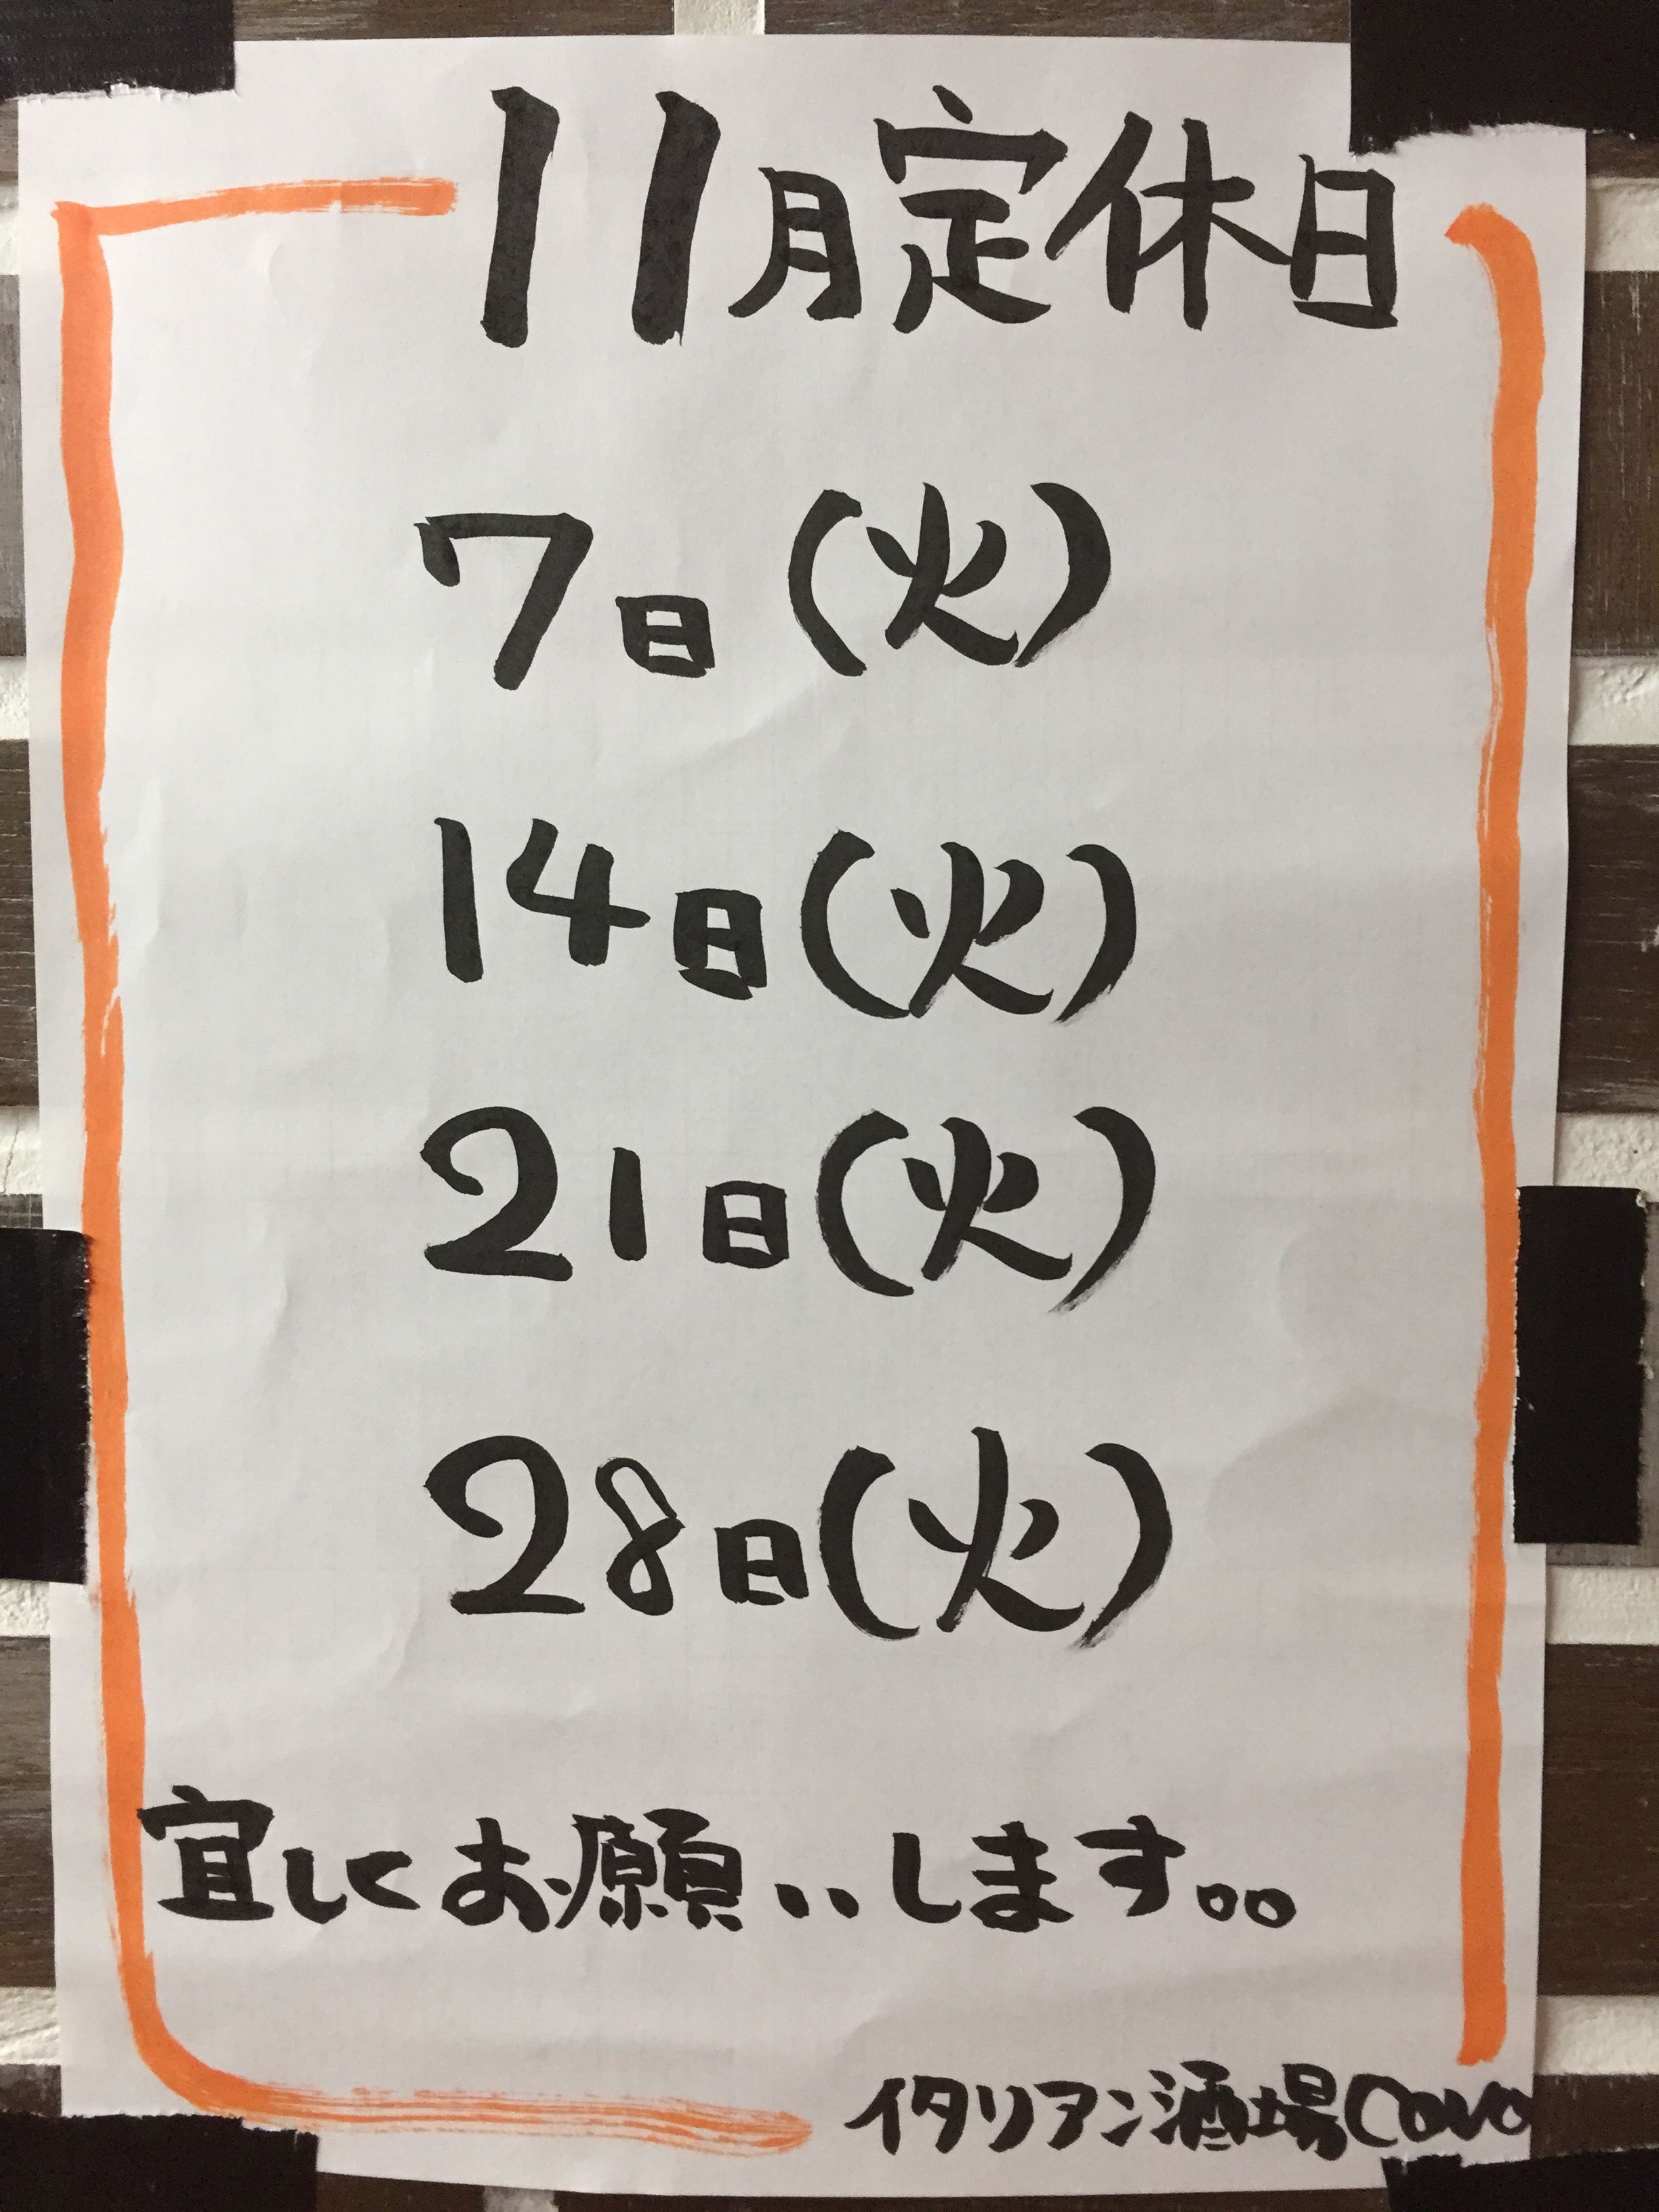 11月定休日
7日(火)
14日(火)
21日(火)
28日(火)
宜しくお願いします。。
イタリアン酒場Covo